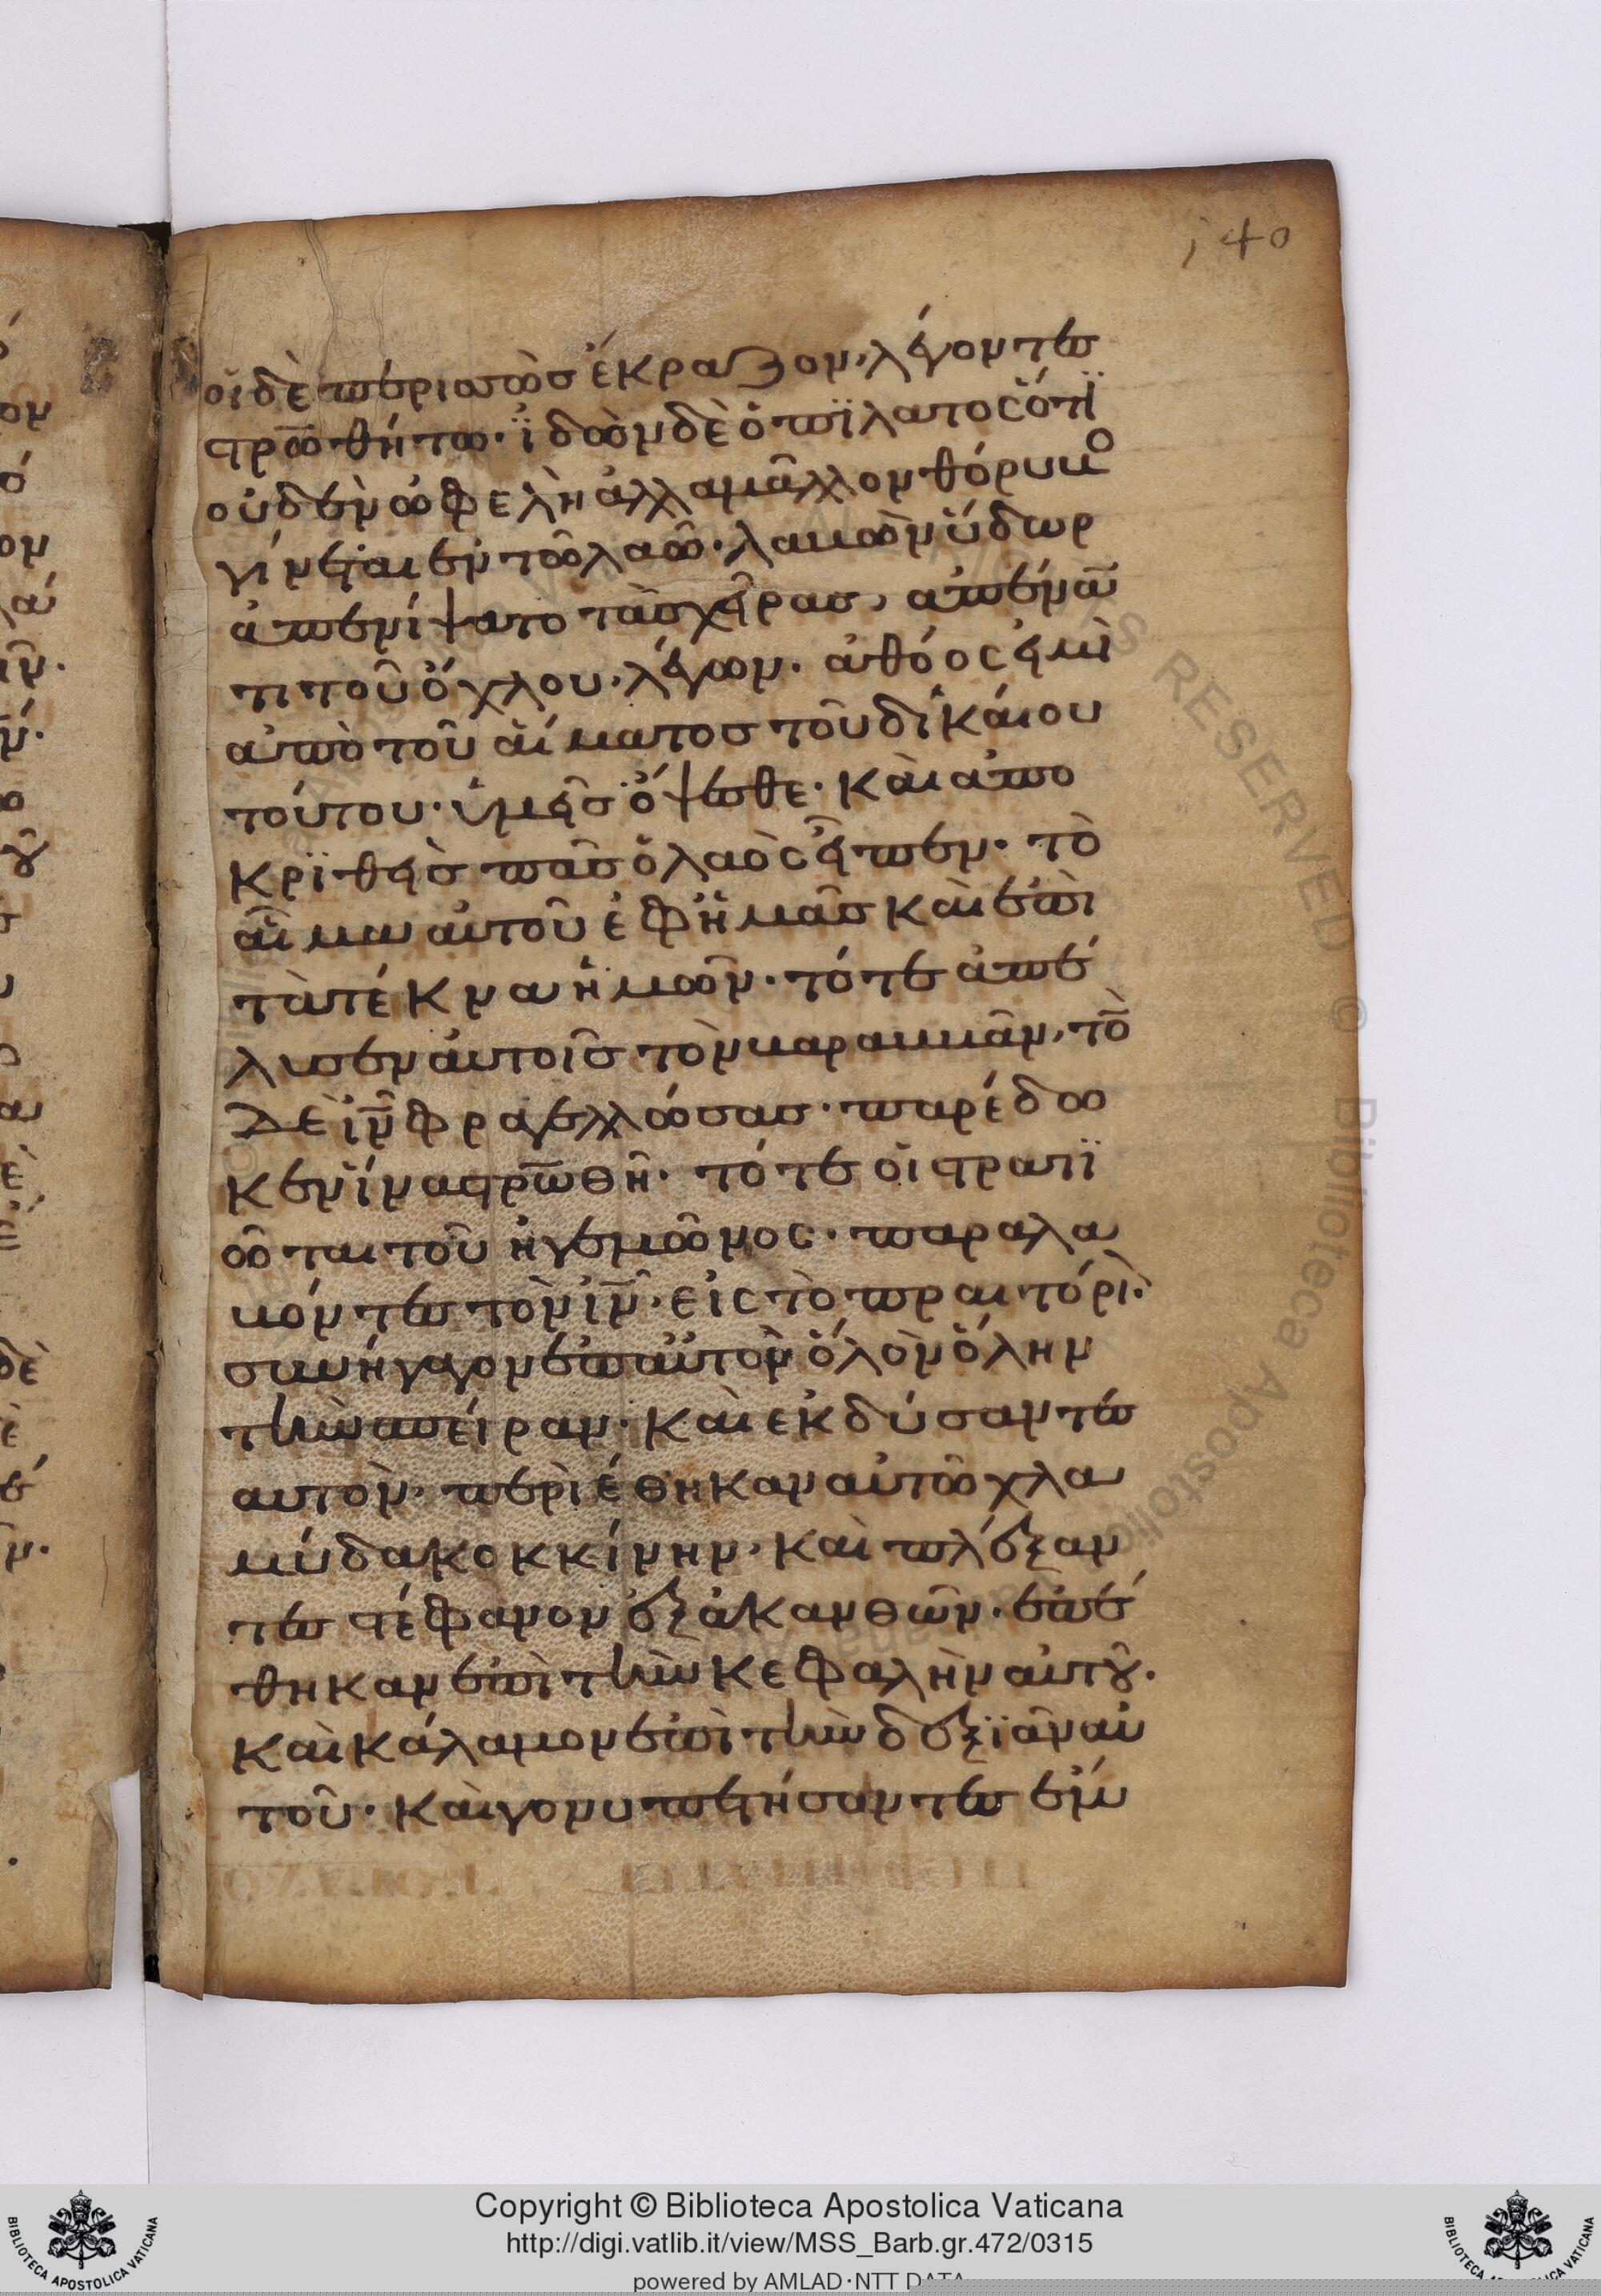 140
οἱ δὲ περισσῶσ ἔκραζον, λέγοντεσ
στρωθήτω· ἰδὼν δὲ ὁ πϊλατος ὅτϊ
οὐδὲν ὠφελὴ ἀλλαμᾶλλον θόρυβο
γίνεται ἐν τῶ λαῶ· λαβὼν ὕδωρ
ἀπενίψατο τὰσ χεῖρασ, ἀπέναν
τι τοῦ ὄχλου, λέγων· ἀθόος εἰμὶ
ἀπὸ τοῦ αἵματοσ τοῦ δικαίου
τούτου· ὑμεῖσ ὄψεσθε· καὶ ἀπο
κρϊθεὶσ πᾶσ ὁ λαὸς εἶπεν· τὸ
αἷμα αὐτοῦ ἐφ ἡμᾶσ καὶ ἐπὶ
τὰ τέκνα ἡμῶν· τότε ἀπέ
λυσεν αὐτοῖσ τὸν βαραββᾶν, τὸ
δὲ ιν φραγελλώσασ· παρέδω
κεν ἵνα στρωθῆ· τότε οἱ στρατϊ
ῶται τοῦ ἡγεμῶνος· παραλα
βόντεσ τὸν ιν· εἰς τὸ πραιτόρὶ·
συνήγαγον ἐπ αὐτὸν ὅλὸν ὅλην
τὴν σπείραν· καὶ ἐκδύσαντεσ
αυτὸν· περιέθηκαν αὐτῶ χλα
μύδα κοκκίνην· καὶ πλέξαν
τεσ στέφανον ἐξ ἀκανθῶν· ἐπέ
θηκαν ἐπὶ τὴν κεφαλὴν αὐτοῦ·
καὶ κάλαμον ἐπὶ τὴν δεξϊὰν αὐ
τοῦ· καὶ γονυπετήσαντεσ ἐν
Copyright © Biblioteca Apostolica Vaticana
http://digi.vatlib.it/view/MSS_Barb.gr.472/0315
powered by AMLAD·NTT DATA
BIBLIOTECA APOSTOLICA VATICANA
BIBLIOTECA APOSTOLICA VATICANA